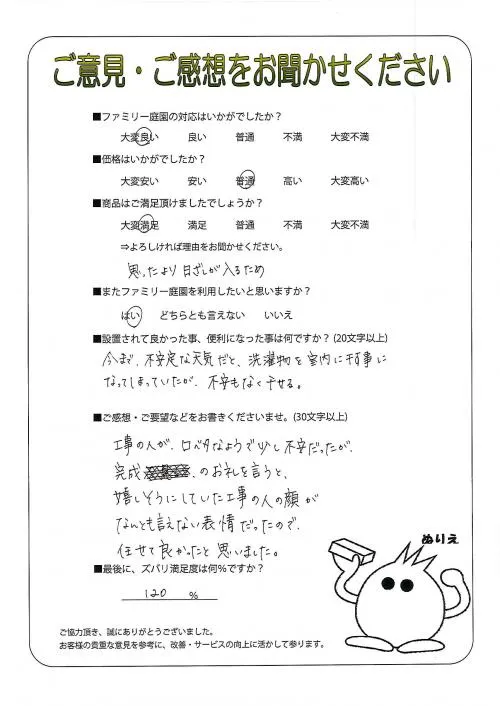 ご意見・ご感想をお聞かせください
■ファミリー庭園の対応はいかがでしたか？
大変良い　良い　普通　不満　大変不満
■価格はいかがでしたか？
大変安い　安い　普通　高い　大変高い
■商品はご満足頂けましたでしょうか？
大変満足　満足　普通　不満　大変不満
⇒よろしければ理由をお聞かせください。
思ったより日ざしが入るため
■またファミリー庭園を利用したいと思いますか？
はい　どちらとも言えない　いいえ
■設置されて良かった事、便利になった事は何ですか？(20文字以上)
今まで、不安定な天気だと、洗濯物を室内に干す事に
なってしまっていたが、不安もなく干せる。
■ご感想・ご要望などをお書きくださいませ。(30文字以上)
工事の人が、口ベタなようで少し不安だったが、
完成 のお礼を言うと、
嬉しそうにしていた工事の人の顔が
なんとも言えない表情だったので、
任せて良かったと思いました。
ぬりえ
■最後に、ズバリ満足度は何％ですか？
120 %
ご協力頂き、誠にありがとうございました。
お客様の貴重な意見を参考に、改善・サービスの向上に活かして参ります。